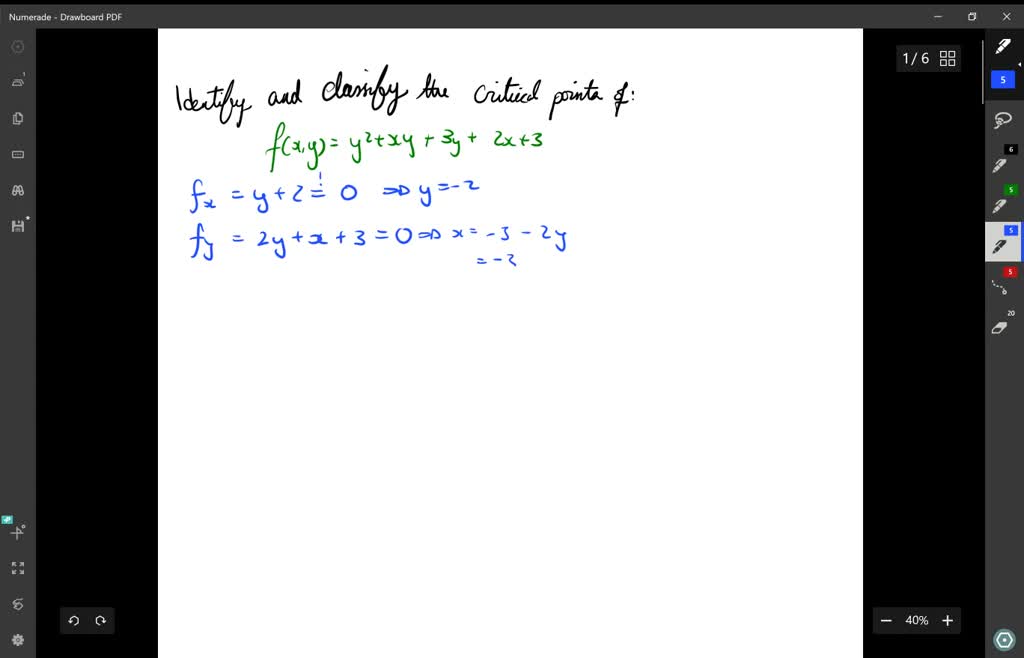 Numerade - Drawboard PDF
1 / 6
Identify and classify the critical points of:
f(x,y) = y²+xy + 3y + 2x+3
f_x = y + 2 = 0 ⇒ y = -2
!
f_y = 2y + x + 3 = 0 ⇒ x = -3 - 2y
= -2
1
5
6
5
5
5
20
40%